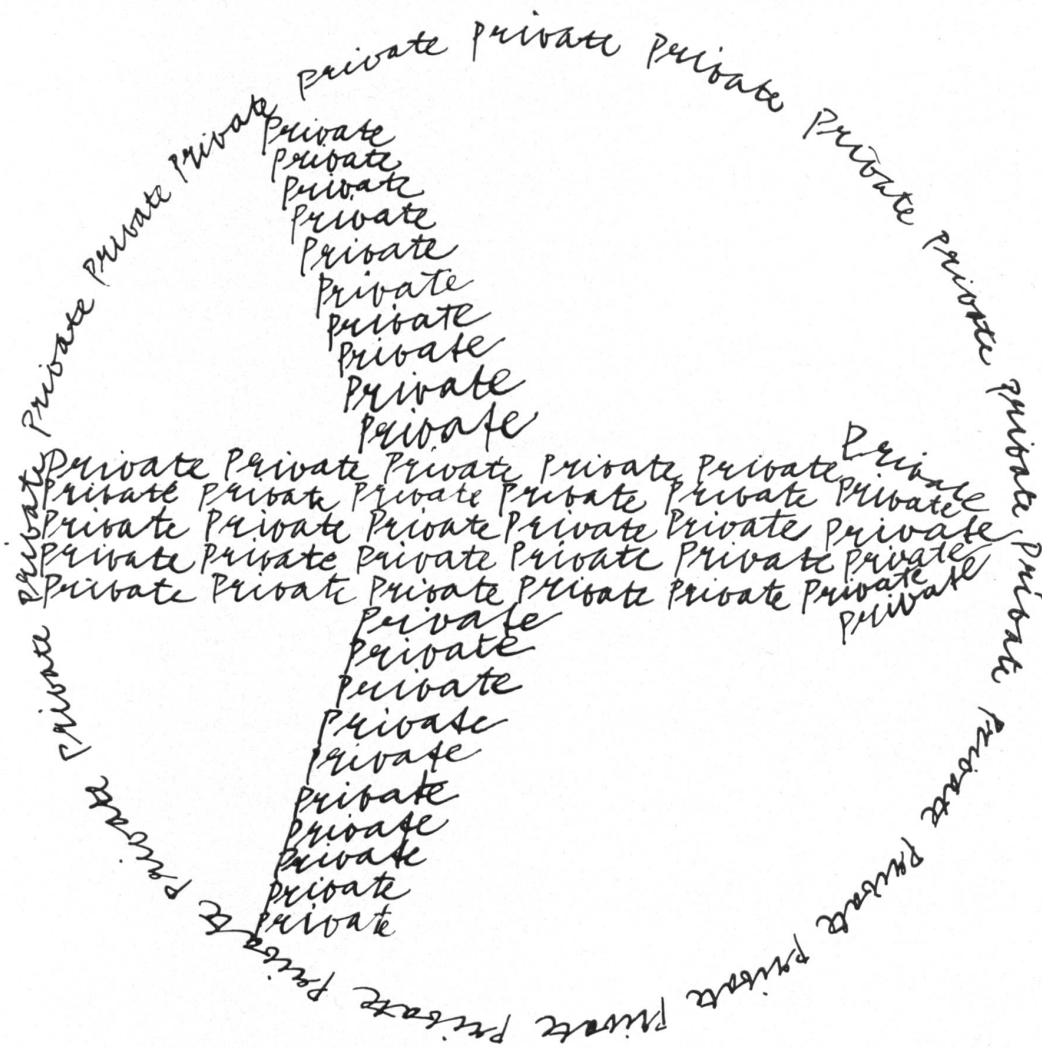 private private private private private private private private private private private private private private private private private private private
Private
Private
Private
Private
Private
Private
Private
Private
Private
Private
Private Private Private Private Private Private
Private Private Private Private Private Private
Private Private Private Private Private Private
Private Private Private Private Private Private
Private Private Private Private Private Private
private
Private
Private
Private
Private
Private
Private
Private
Private
Private
Private